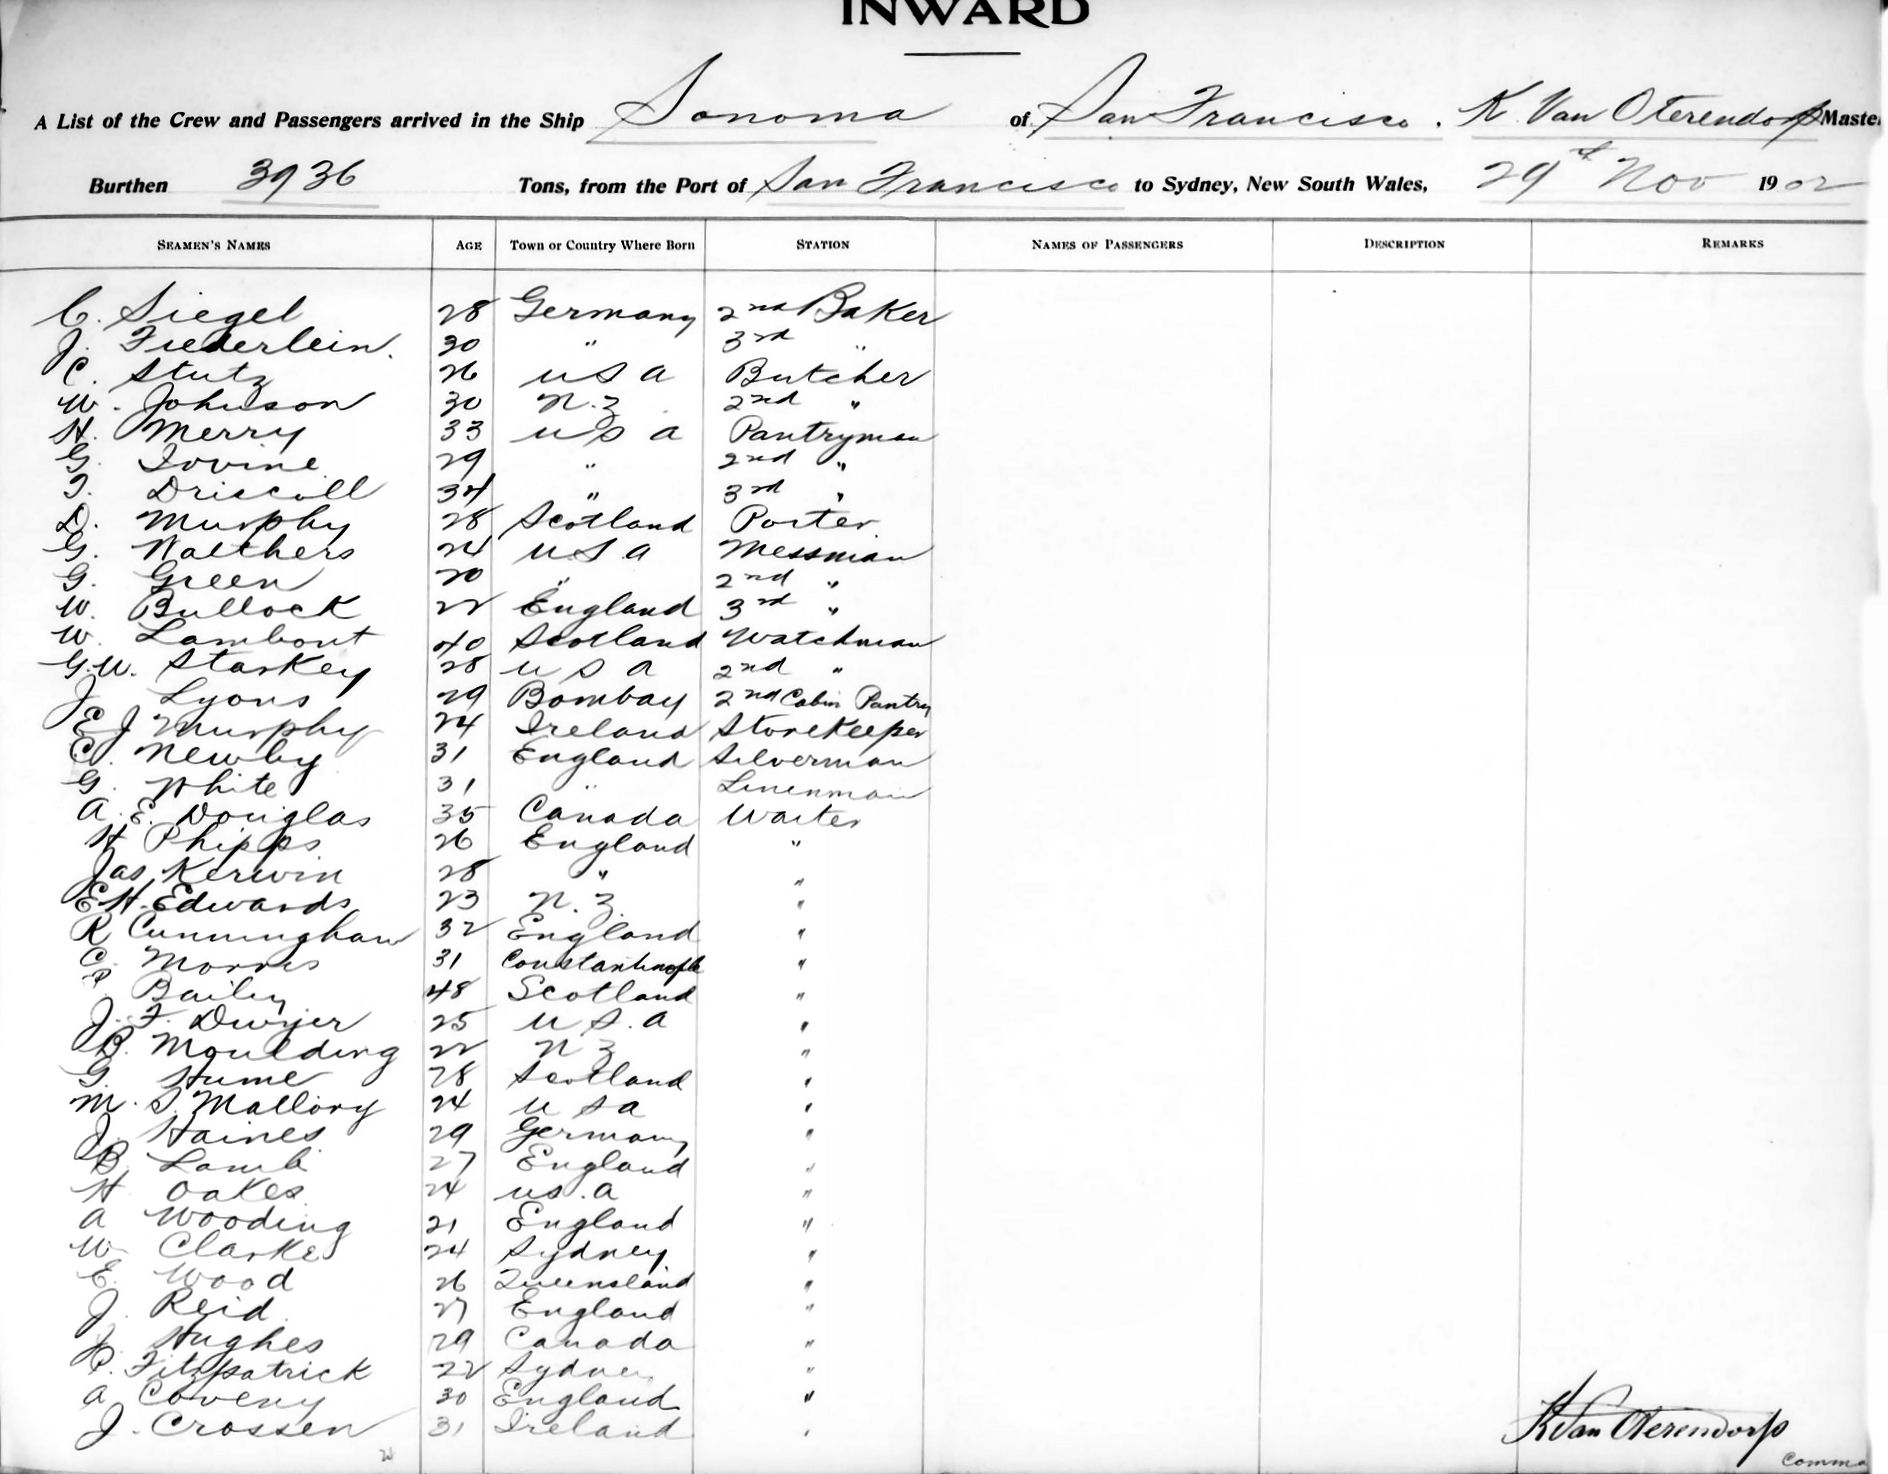 INWARD
A List of the Crew and Passengers arrived in the Ship Sonoma of San Francisco. K. Van Oterendorp Master
Burthen 3936 Tons, from the Port of San Francisco to Sydney, New South Wales, 29th Nov 1902
SEAMEN'S NAMES AGE Town or Country Where Born STATION NAMES OF PASSENGERS DESCRIPTION REMARKS
C. Siegel 28 Germany 2nd Baker
J. Fiederlein. 30 " 3rd "
C. Stutz 26 U S A Butcher
W. Johnson 30 N.Z. 2nd "
H. Merry 33 U S A Pantryman
G. Iovine 29 " 2nd "
T. Driscoll 34 " 3rd "
D. Murphy 28 Scotland Porter
G. Walthers 24 U S A Messman
G. Green 20 " 2nd "
W. Bullock 22 England 3rd "
W. Lambout 40 Scotland Watchman
G.W. Starkey 28 U S A 2nd "
J Lyons 29 Bombay 2nd Cabin Pantry
E J Murphy 24 Ireland Storekeeper
C. Newby 31 England Silverman
G. White 31 " Linenman
A. E. Douglas 35 Canada Waiter
H Phipps 26 England "
Jas Kerwin 28 " "
E H. Edwards 23 N. Z. "
R Cunningham 32 England "
C. Morris 31 Constantinople "
P Bailey 48 Scotland "
J. F. Dwyer 25 U S. A "
B. Moulding 22 N Z "
G. Hume 28 Scotland "
M. S. Mallory 24 U S A "
J. Haines 29 Germany "
B. Lamb 27 England "
H Oakes 24 U S. A "
A Wooding 21 England "
W Clarke 24 Sydney "
E. Wood 26 Queensland "
J. Reid 27 England "
J. Hughes 29 Canada "
P. Fitzpatrick 22 Sydney "
A Coveny 30 England "
J. Crossen 31 Ireland "
K Van Oterendorp
Comma